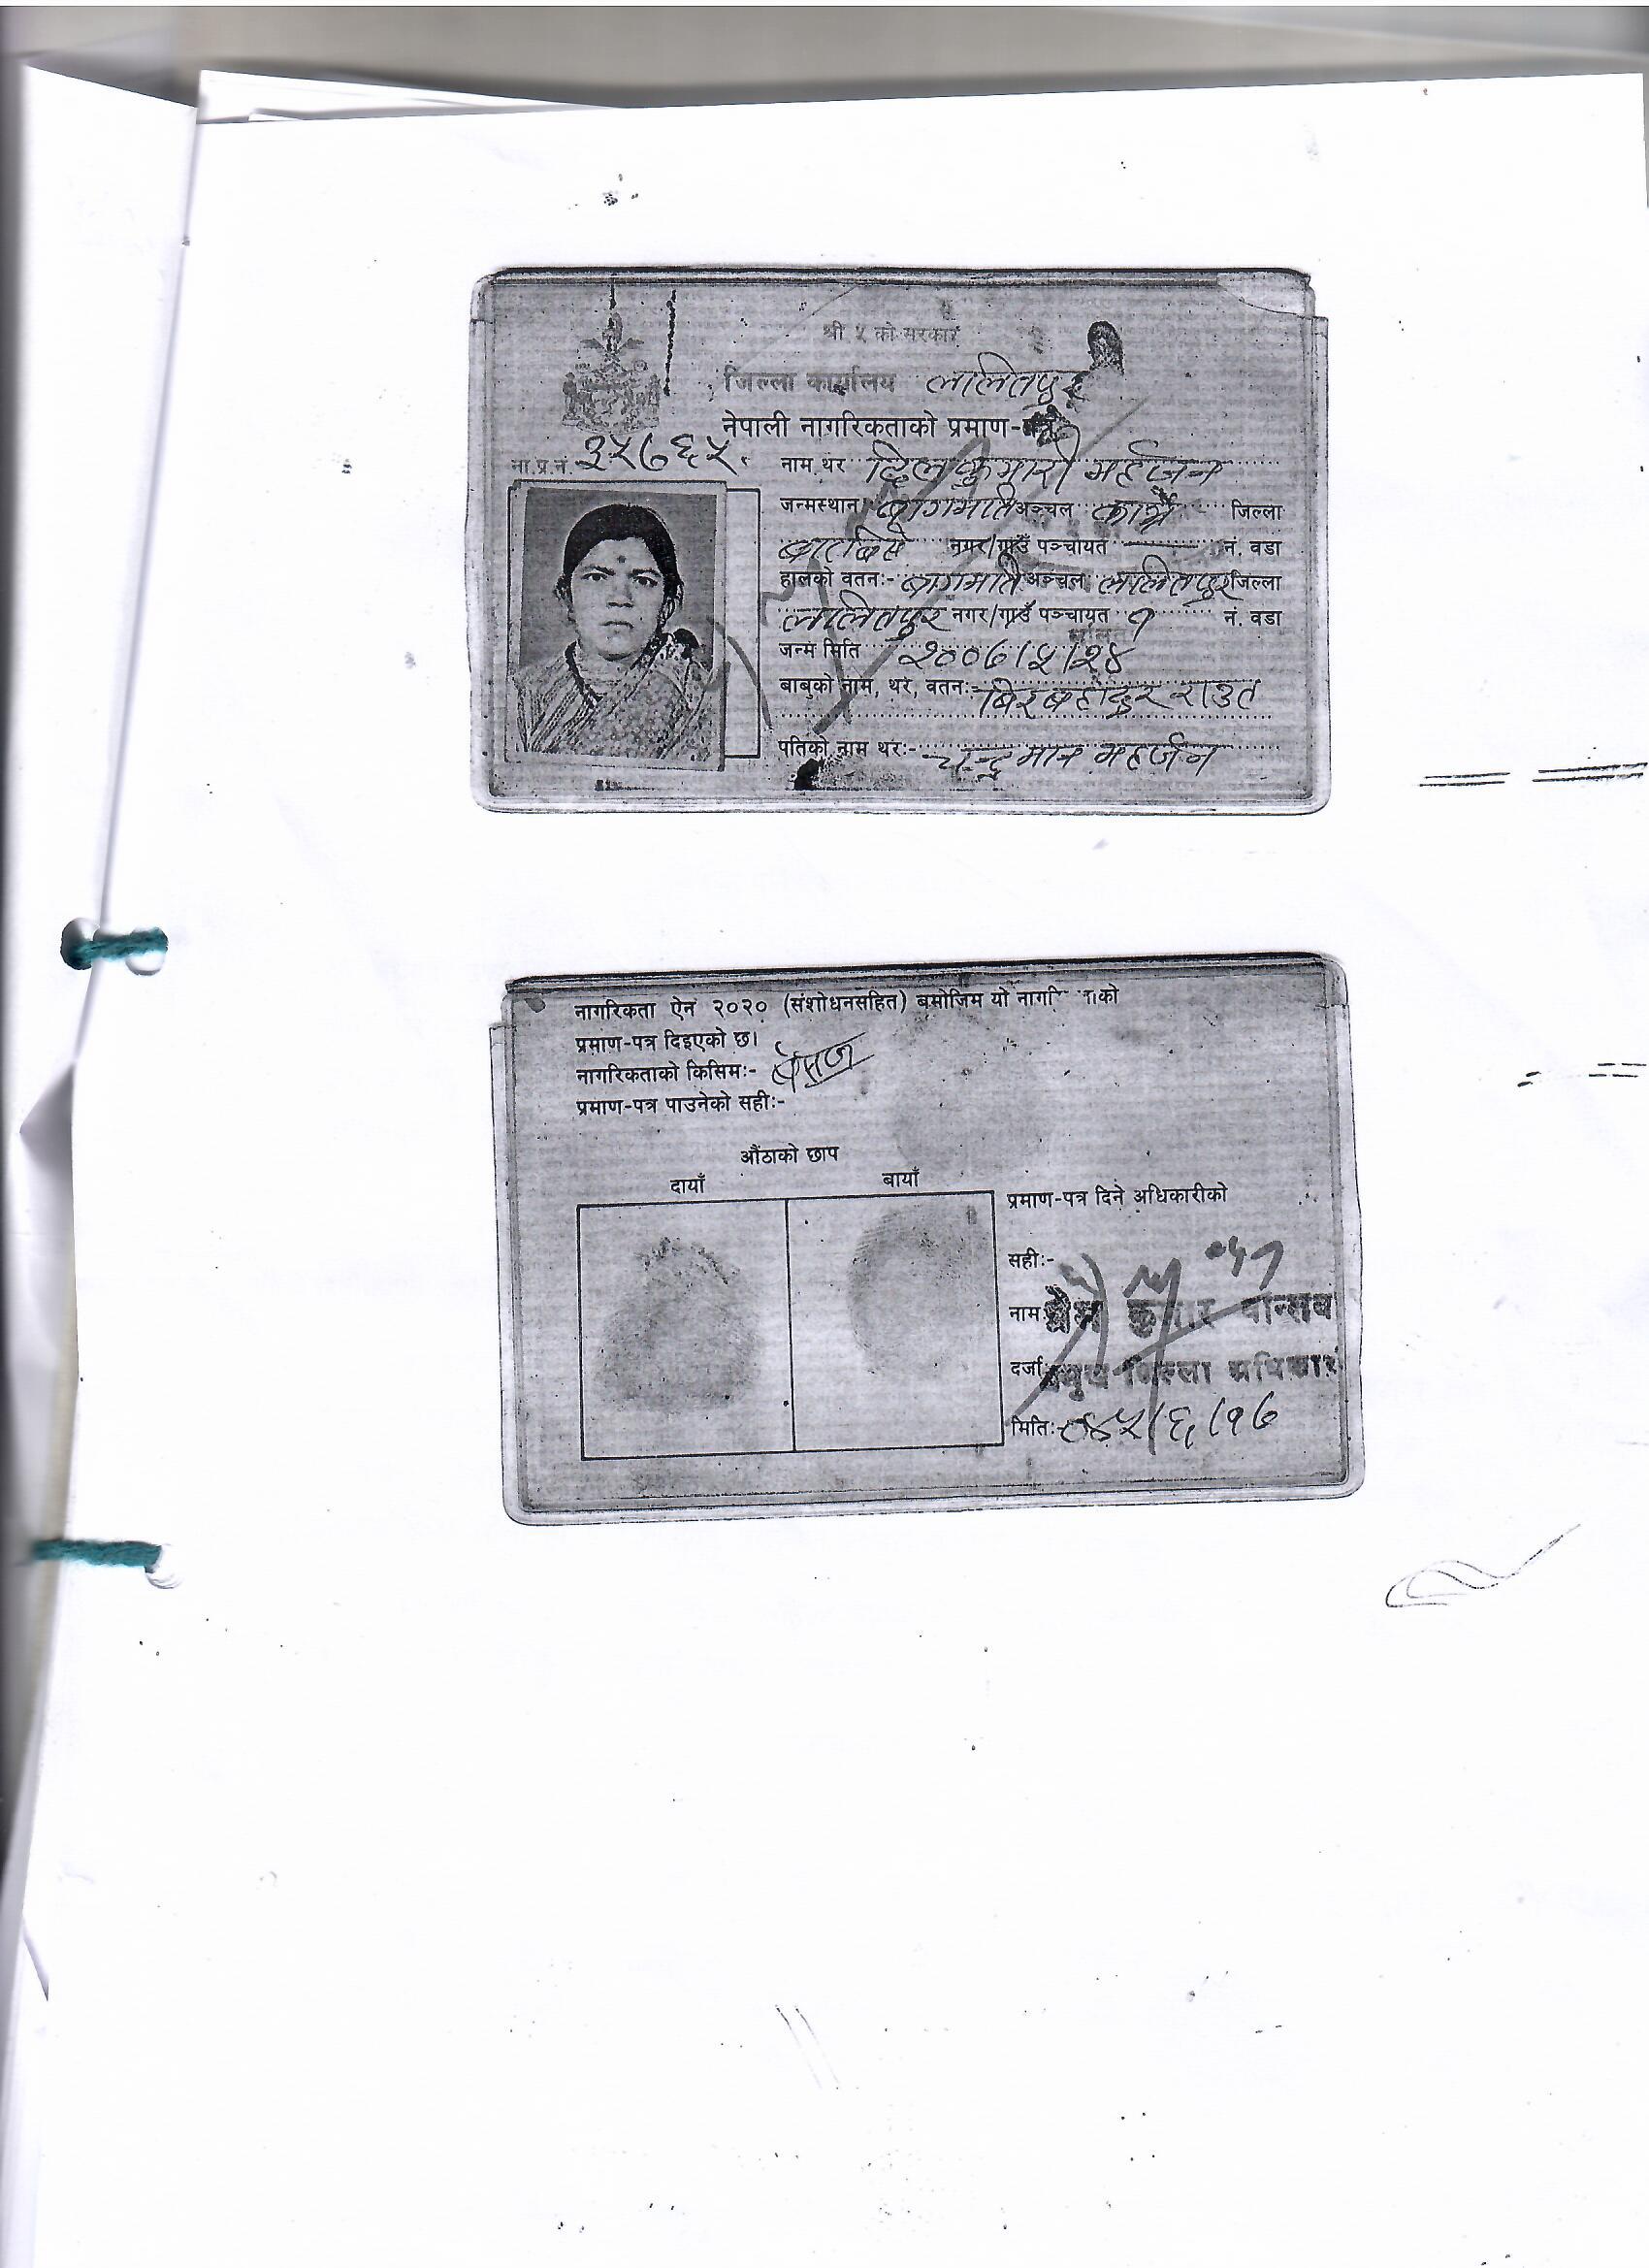 श्री ५ को सरकार
जिल्ला कार्यालय ललितपुर
नेपाली नागरिकताको प्रमाण-पत्र
ना.प्र.नं. ३५७६५
नाम थर दिलकुमारी महर्जन
जन्मस्थान बागमति अञ्चल काभ्रे जिल्ला
नगर/गाउँ पञ्चायत नं. वडा
हालको वतनः- बागमति अञ्चल ललितपुर जिल्ला
ललितपुर नगर/गाउँ पञ्चायत १ नं. वडा
जन्म मिति २००७/५/२४
बाबुको नाम, थर, वतनः- बिरबहादुर राउत
पतिको नाम थरः- चन्द्रमान महर्जन
नागरिकता ऐन २०२० (संशोधनसहित) बमोजिम यो नागरि ाको
प्रमाण-पत्र दिइएको छ।
नागरिकताको किसिमः- बंसज
प्रमाण-पत्र पाउनेको सहीः-
औंठाको छाप
दायाँ बायाँ
प्रमाण-पत्र दिने अधिकारीको
सहीः-
नामः कुमार
दर्जाः प्रमुख जिल्ला अधिकारी
मितिः ०४५/६/१७